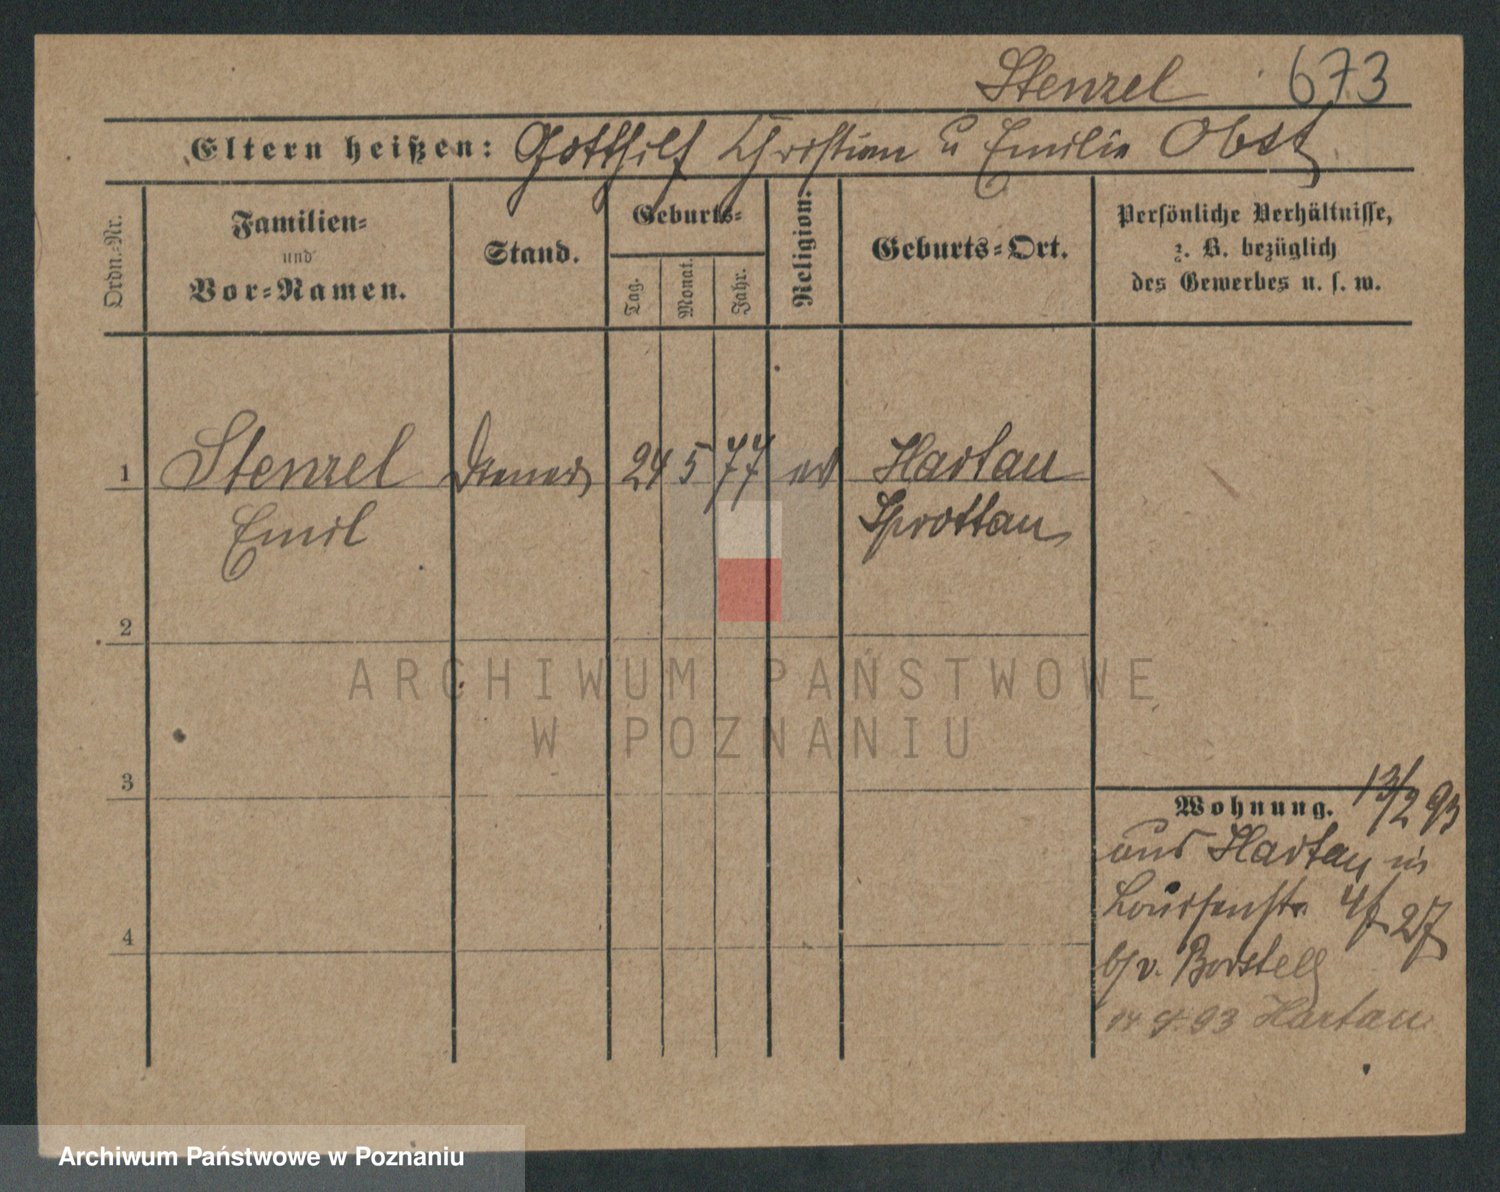 Stenzel 673
Eltern heißen: Gotthilf Christian u Emilie Obst
Ordn.-Nr.
Familien-
und
Vor-Namen.
Stand.
Geburts-
Tag.
Monat.
Jahr.
Religion.
Geburts-Ort.
Persönliche Verhältnisse,
z. B. bezüglich
des Gewerbes u. s. w.
1 Stenzel Diener 24 5 77 ev Hartau
Emil Sprottau
2
3
4
Wohnung. 13/2 93
aus Hartau in
Louisenstr 4/5 27
b/ v. Borstell
93 Hartau
ARCHIWUM PAŃSTWOWE
W POZNANIU
Archiwum Państwowe w Poznaniu